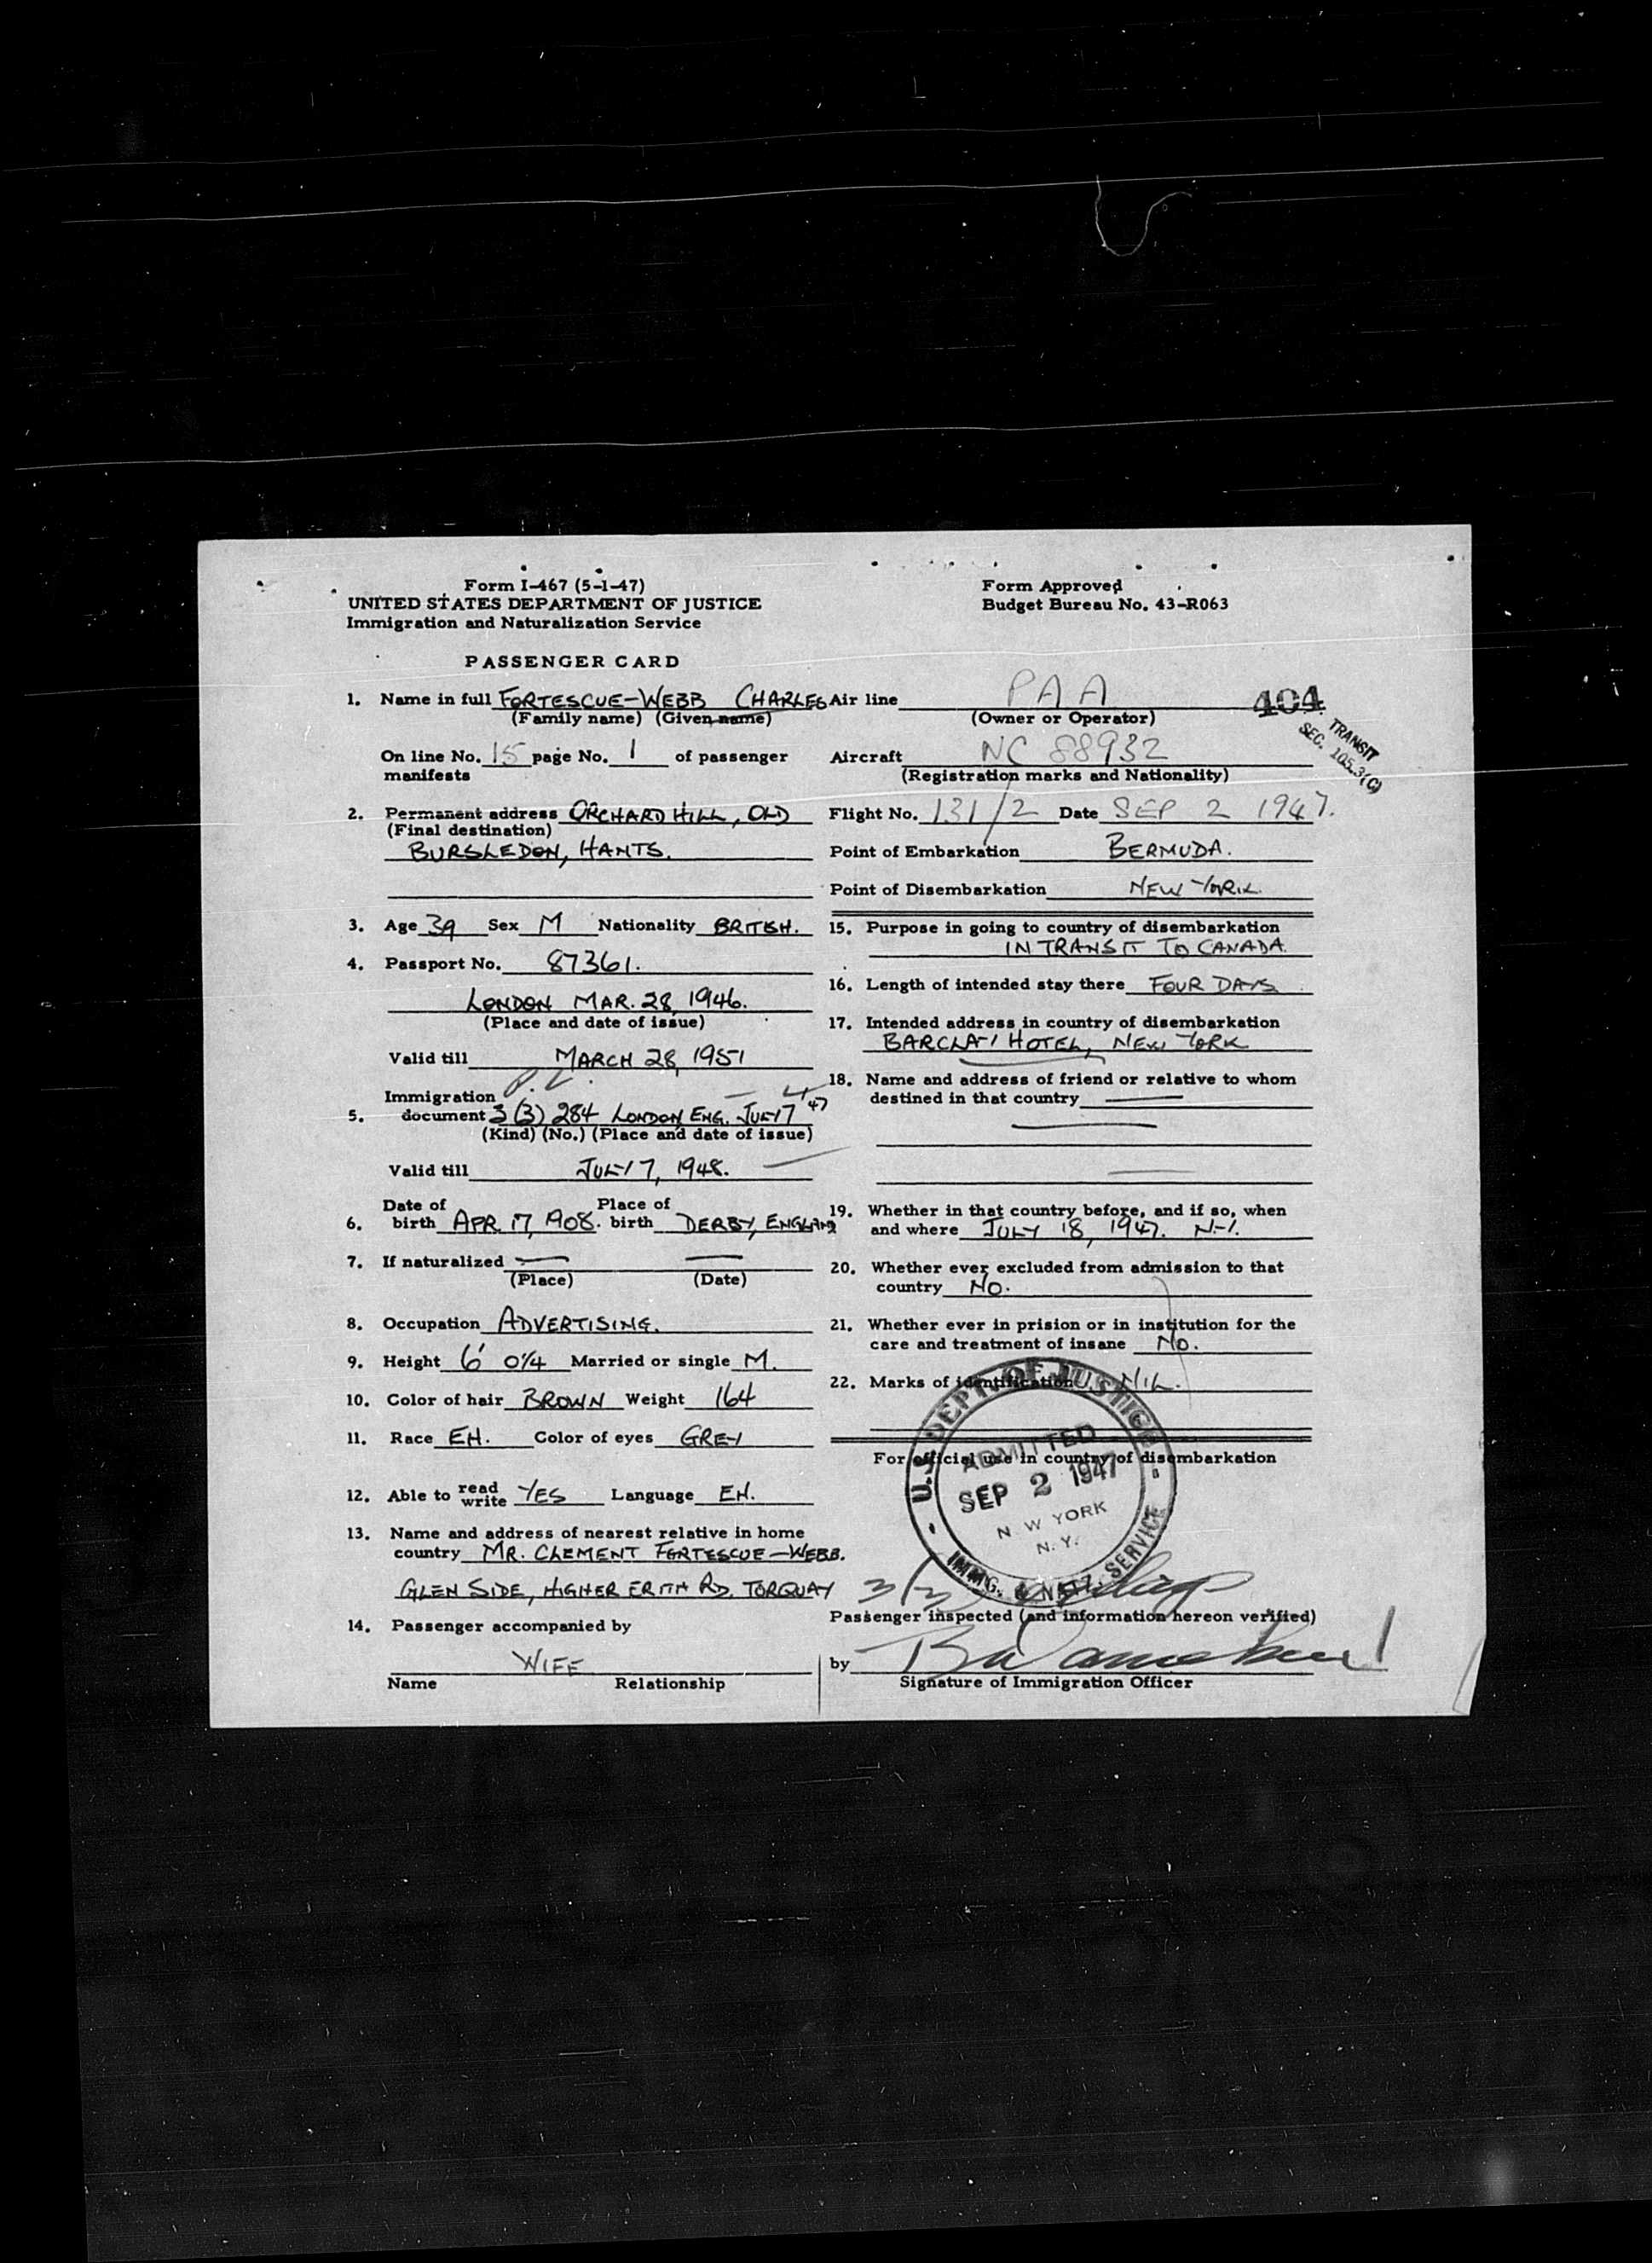 Form I-467 (5-1-47)
UNITED STATES DEPARTMENT OF JUSTICE
Immigration and Naturalization Service
Form Approved
Budget Bureau No. 43-R063
PASSENGER CARD
1. Name in full FORTESCUE-WEBB CHARLES
(Family name) (Given name)
On line No. 15 page No. 1 of passenger
manifests
2. Permanent address ORCHARD HILL, OLD
(Final destination)
BURSLEDON, HANTS.
3. Age 39 Sex M Nationality BRITISH.
4. Passport No. 87361.
LONDON MAR. 28, 1946.
(Place and date of issue)
Valid till MARCH 28, 1951
Immigration
5. document 3 (3) 284 LONDON ENG. JULY 17 '47
(Kind) (No.) (Place and date of issue)
Valid till JULY 17, 1948.
Date of Place of
6. birth APR. 17, 1908. birth DERBY, ENGLAND
7. If naturalized
(Place) (Date)
8. Occupation ADVERTISING.
9. Height 6' 0 1/4 Married or single M.
10. Color of hair BROWN Weight 164
11. Race EH. Color of eyes GREY
12. Able to read write YES Language EH.
13. Name and address of nearest relative in home
country MR. CLEMENT FORTESCUE-WEBB.
GLEN SIDE, HIGHER ERITH RD. TORQUAY
14. Passenger accompanied by
WIFE
Name Relationship
Air line PAA
(Owner or Operator)
404
TRANSIT
SEC. 105.3(C)
Aircraft NC 88932
(Registration marks and Nationality)
Flight No. 131/2 Date SEP 2 1947.
Point of Embarkation BERMUDA.
Point of Disembarkation NEW YORK.
15. Purpose in going to country of disembarkation
IN TRANSIT TO CANADA.
16. Length of intended stay there FOUR DAYS
17. Intended address in country of disembarkation
BARCLAY HOTEL, NEW YORK
18. Name and address of friend or relative to whom
destined in that country
19. Whether in that country before, and if so, when
and where JULY 18, 1947. N.Y.
20. Whether ever excluded from admission to that
country NO.
21. Whether ever in prision or in institution for the
care and treatment of insane NO.
22. Marks of identification NIL.
For official use in country of disembarkation
U.S. DEPT. OF JUSTICE
ADMITTED
SEP 2 1947
N W YORK
N. Y.
IMMIG. & NATZ. SERVICE
Passenger inspected (and information hereon verified)
by
Signature of Immigration Officer